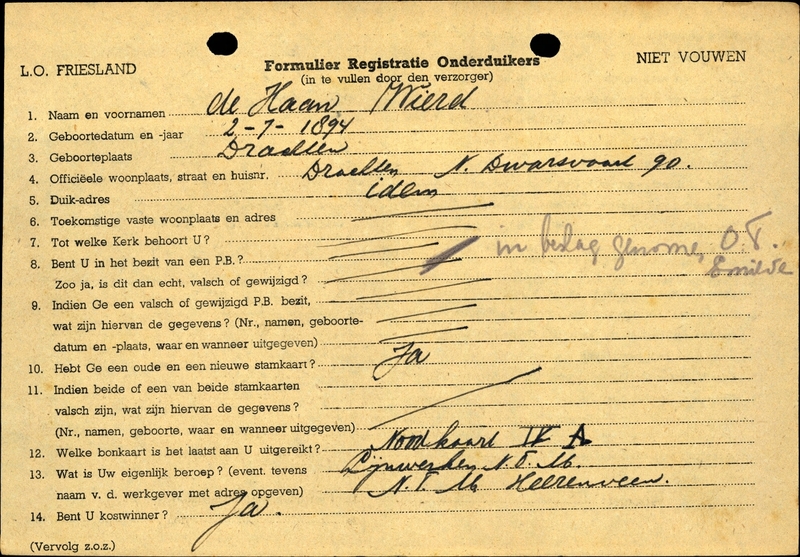 L.O. FRIESLAND
Formulier Registratie Onderduikers
(in te vullen door den verzorger)
NIET VOUWEN
1. Naam en voornamen de Haan Wierd
2. Geboortedatum en -jaar 2-7-1894
3. Geboorteplaats Drachten
4. Officiëele woonplaats, straat en huisnr. Drachten N. Dwarsvaart 90.
5. Duik-adres idem
6. Toekomstige vaste woonplaats en adres
7. Tot welke Kerk behoort U?
8. Bent U in het bezit van een P.B.? in beslag genome,
Zoo ja, is dit dan echt, valsch of gewijzigd?
9. Indien Ge een valsch of gewijzigd P.B. bezit,
wat zijn hiervan de gegevens? (Nr., namen, geboorte-
datum en -plaats, waar en wanneer uitgegeven)
10. Hebt Ge een oude en een nieuwe stamkaart? Ja
11. Indien beide of een van beide stamkaarten
valsch zijn, wat zijn hiervan de gegevens?
(Nr., namen, geboorte, waar en wanneer uitgegeven)
12. Welke bonkaart is het laatst aan U uitgereikt? Noodkaart IV A
13. Wat is Uw eigenlijk beroep? (event. tevens Lijnwerker N.T.M.
naam v. d. werkgever met adres opgeven) N.T.M. Heerenveen.
14. Bent U kostwinner? Ja.
(Vervolg z.o.z.)